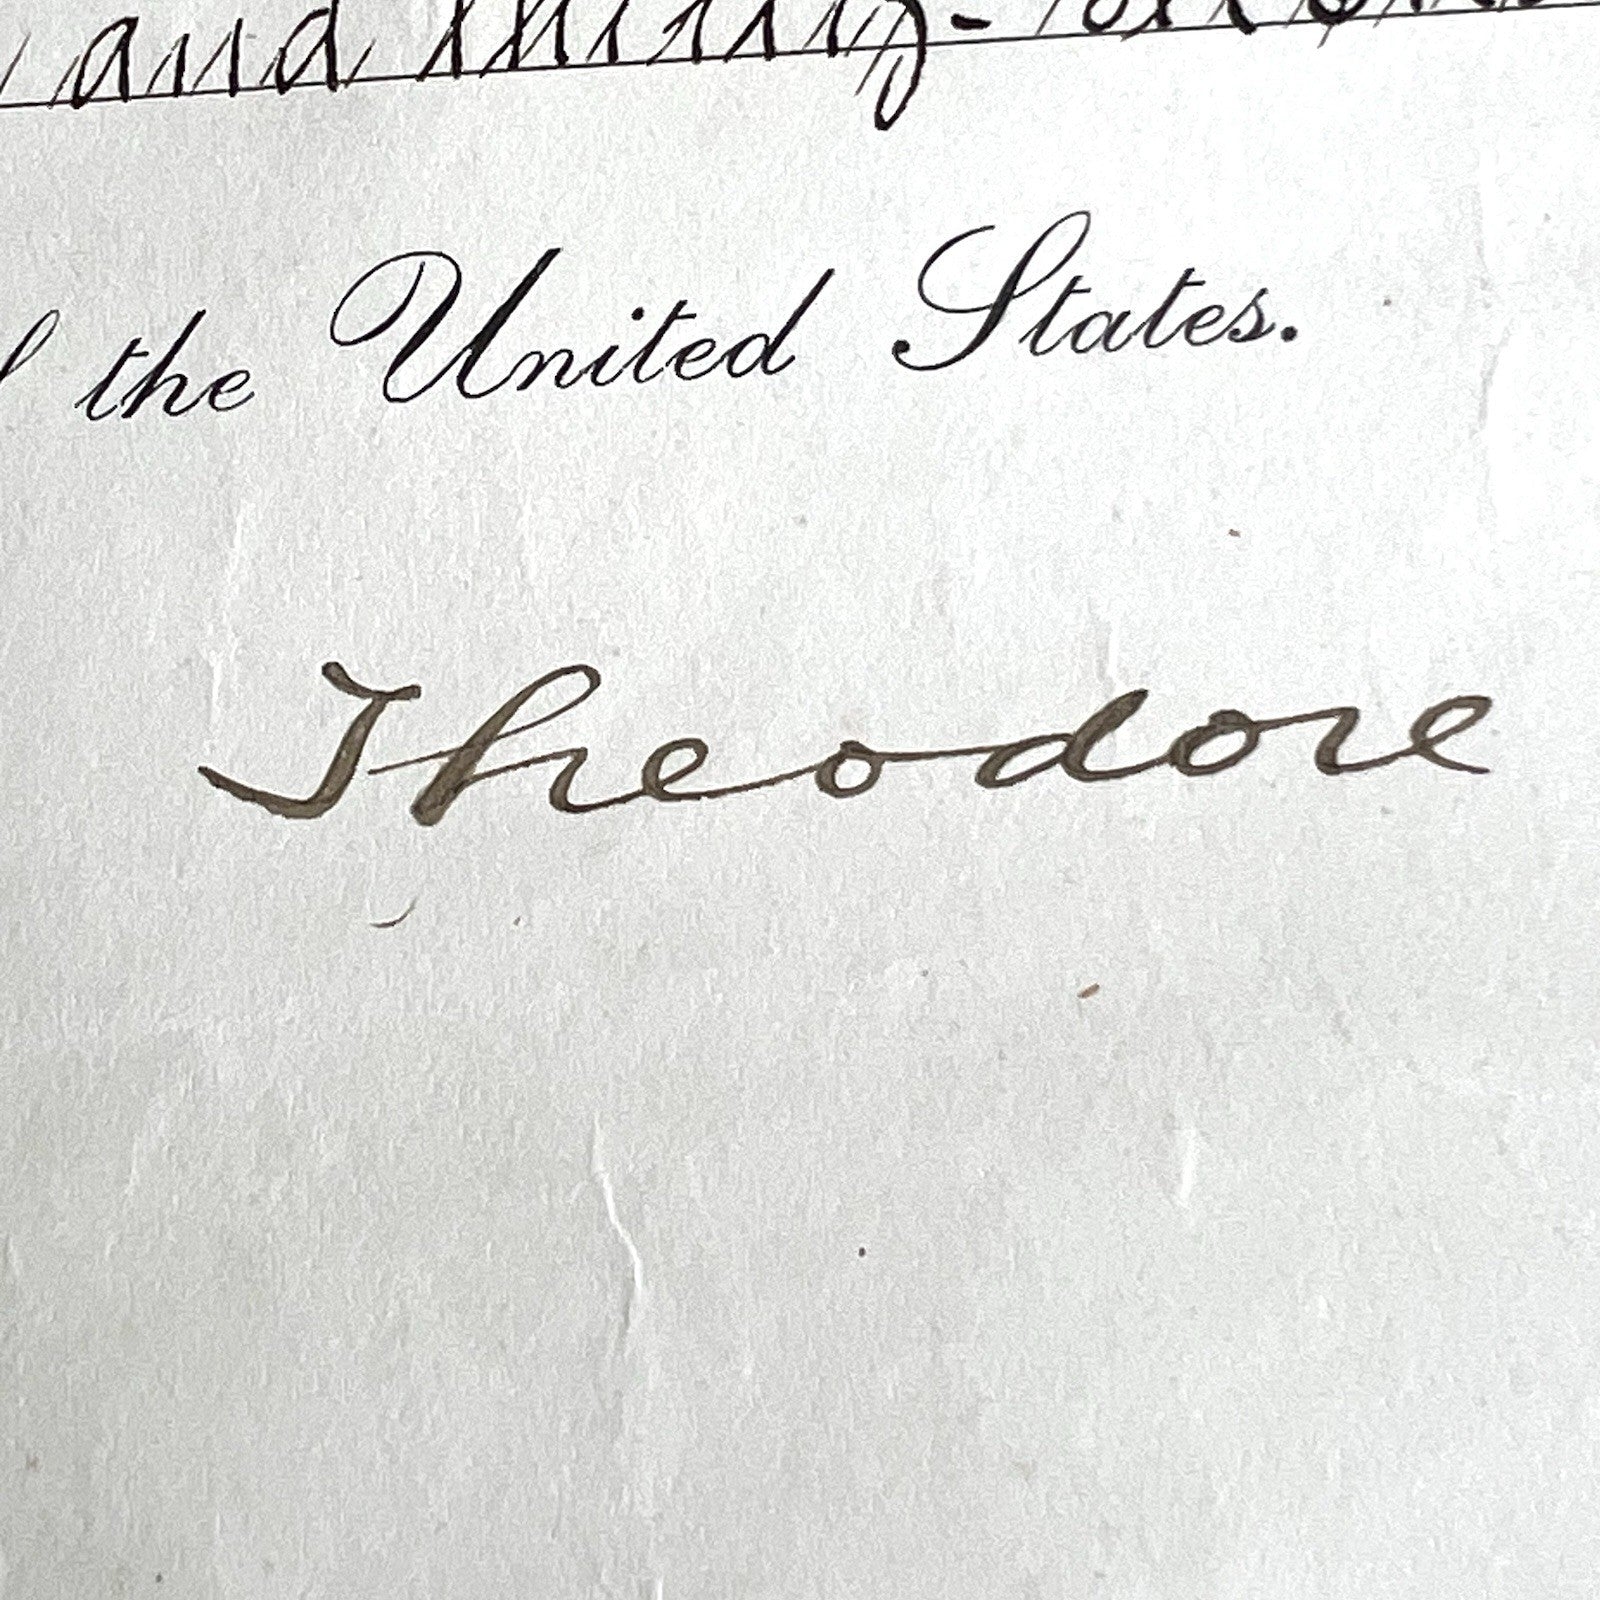 and thirty-sixth
f the United States.
Theodore